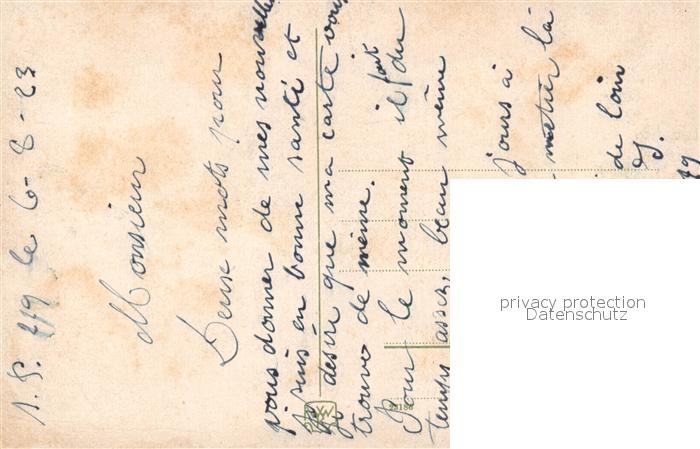 S. P. 779 le 6-8-23
Monsieur
Deux mots pour
vous donner de mes nouvelles
suis en bonne santé et
désire que ma carte vous
trouve de même.
Pour le moment il fait du
temps assez, beau même
jours à
metier là
de loin
privacy protection
Datenschutz